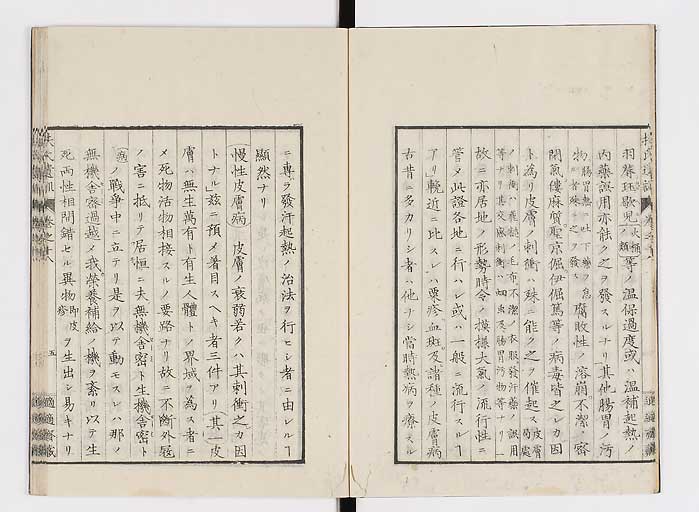 羽蓐環歇児火桶ノ類等ノ温保過度或ハ温補起熱ノ
内薬誤用亦能ク之ヲ發スルナリ其他腸胃ノ汚
物腐敗性ノ溶崩不潔ノ密
閉氣僂麻質斯京偔伊偔篤等ノ病毒皆之レカ因
ト為リ皮膚ノ刺衝ハ殊ニ能ク之ヲ催起ス
故ニ亦居地ノ形勢時令ノ摸樣大氣ノ流行性ニ
管メ此證各地ニ行ハレ或ハ一般ニ流行スルヿ
アリ輓近ニ比スレハ粟疹血斑及諸種ノ皮膚病
古昔ニ多カリシ者ハ他ナシ當時熱病ヲ療スル
ニ専ラ發汗起熱ノ治法ヲ行ヒシ者ニ由レルヿ
顯然ナリ
慢性皮膚病 皮膚ノ衰弱若クハ其刺衝之カ因
トナル玆ニ預メ著目スヘキ者三件アリ其一皮
膚ハ無生萬有ト有生人體トノ界域ヲ為ス者ニ
メ死物活物相接スルノ要路ナリ故ニ不断外
ノ害ニ抵リテ居恒ニ夫無機舎密ト生機舎密ト
ノ戰争中ニ立テリ是ヲ以テ動モスレハ那ノ
無機舎密過越メ我榮養補給ノ機ヲ紊リ以テ生
死両性相間錯セル異物即皮疹ヲ生出シ易キナリ
扶氏遺訓
五
適適齋蔵